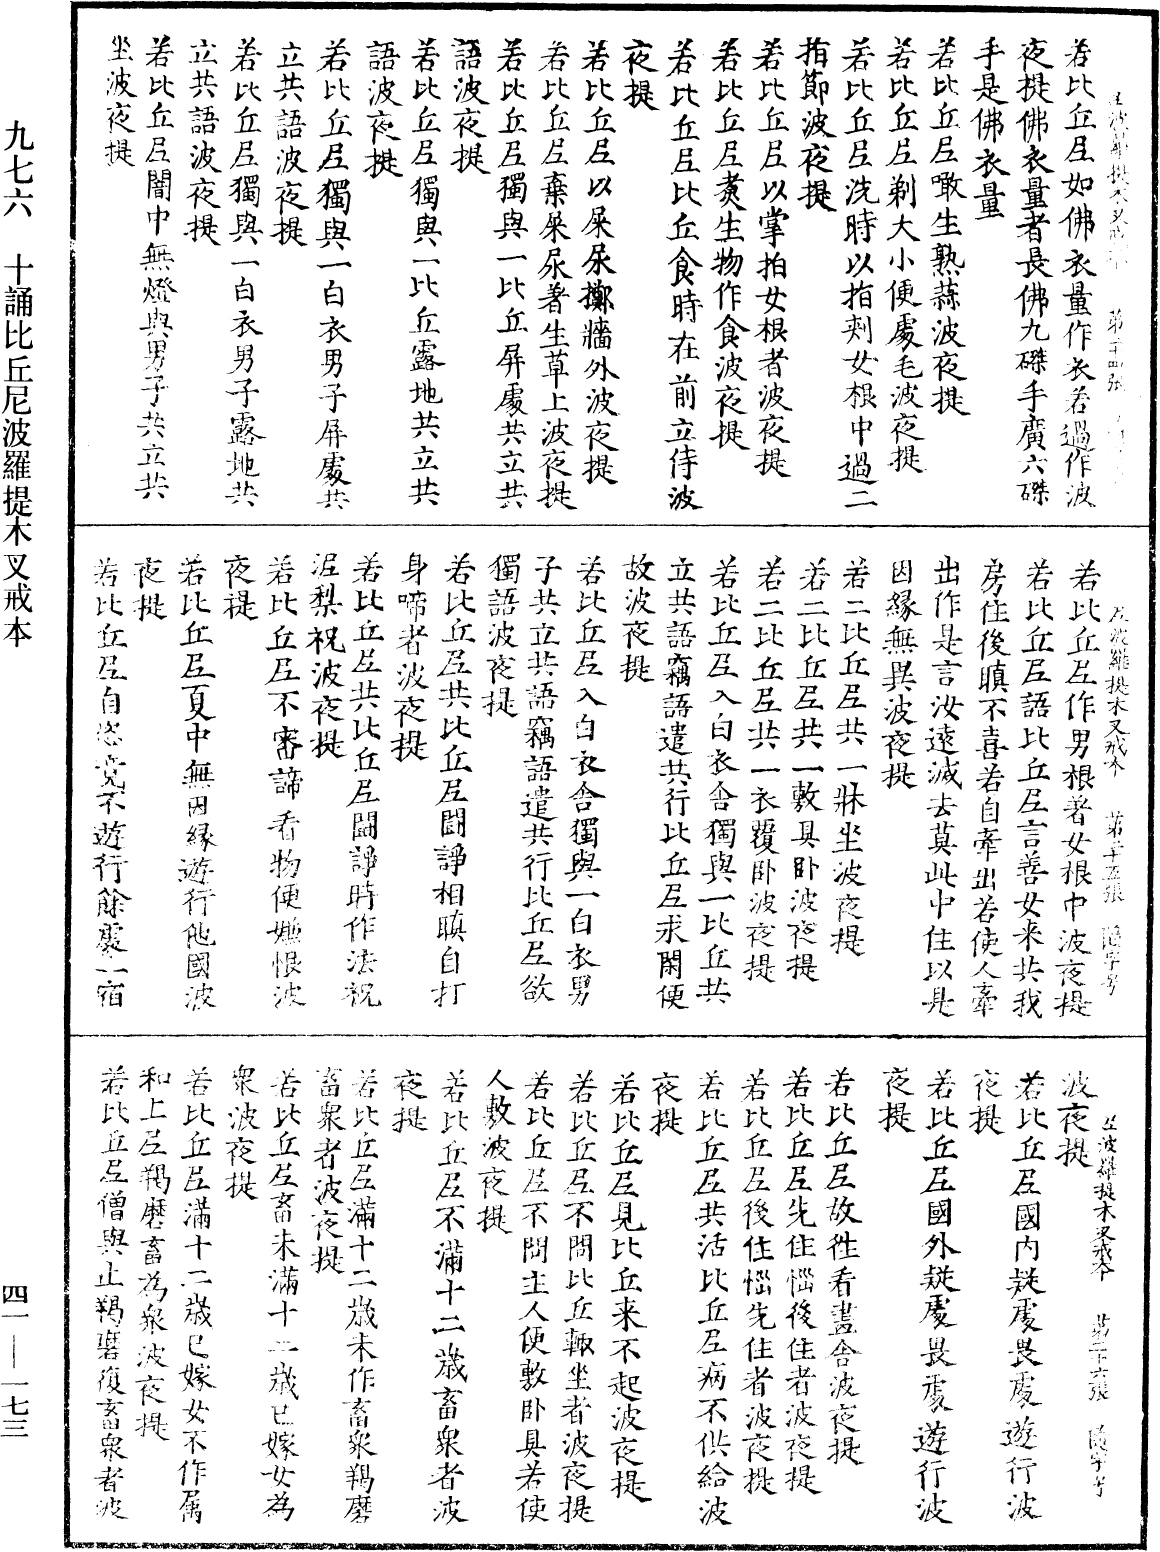 九七六　十誦比丘尼波羅提木叉戒本
四一—一七三
若比丘尼如佛衣量作衣若過作波
夜提佛衣量者長佛九磔手廣六磔
手是佛衣量
若比丘尼噉生熟蒜波夜提
若比丘尼剃大小便處毛波夜提
若比丘尼洗時以指刾女根中過二
指節波夜提
若比丘尼以掌拍女根者波夜提
若比丘尼煑生物作食波夜提
若比丘尼比丘食時在前立侍波
夜提
若比丘尼以屎尿擲牆外波夜提
若比丘尼棄屎尿著生草上波夜提
若比丘尼獨與一比丘屏處共立共
語波夜提
若比丘尼獨與一比丘露地共立共
語波夜提
若比丘尼獨與一白衣男子屏處共
立共語波夜提
若比丘尼獨與一白衣男子露地共
立共語波夜提
若比丘尼闇中無燈與男子共立共
坐波夜提
尼波羅提木叉戒本　第二十五張　隨字号
若比丘尼作男根著女根中波夜提
若比丘尼語比丘尼言善女来共我
房住後瞋不喜若自牽出若使人牽
出作是言汝遠滅去莫此中住以是
因緣無異波夜提
若二比丘尼共一牀坐波夜提
若二比丘尼共一敷具卧波夜提
若二比丘尼共一衣覆卧波夜提
若比丘尼入白衣舍獨與一比丘共
立共語竊語遣共行比丘尼求閑便
故波夜提
若比丘尼入白衣舍獨與一白衣男
子共立共語竊語遣共行比丘尼欲
獨語波夜提
若比丘尼共比丘尼鬪諍相瞋自打
身啼者波夜提
若比丘尼共比丘尼鬪諍時作法祝
泥梨祝波夜提
若比丘尼不審諦看物便嫌恨波
夜提
若比丘尼夏中無因緣遊行他國波
夜提
若比丘尼自恣竟不遊行餘處一宿
尼波羅提木叉戒本　第二十六張　隨字号
波夜提
若比丘尼國內疑處畏處遊行波
夜提
若比丘尼國外疑處畏處遊行波
夜提
若比丘尼故往看畫舍波夜提
若比丘尼先住惱後住者波夜提
若比丘尼後住惱先住者波夜提
若比丘尼共活比丘尼病不供給波
夜提
若比丘尼見比丘来不起波夜提
若比丘尼不問比丘輙坐者波夜提
若比丘尼不問主人便敷卧具若使
人敷波夜提
若比丘尼不滿十二歲畜衆者波
夜提
若比丘尼滿十二歲未作畜衆羯磨
畜衆者波夜提
若比丘尼畜未滿十二歲已嫁女為
衆波夜提
若比丘尼滿十二歲已嫁女不作屬
和上尼羯磨畜為衆波夜提
若比丘尼僧與止羯磨復畜衆者波